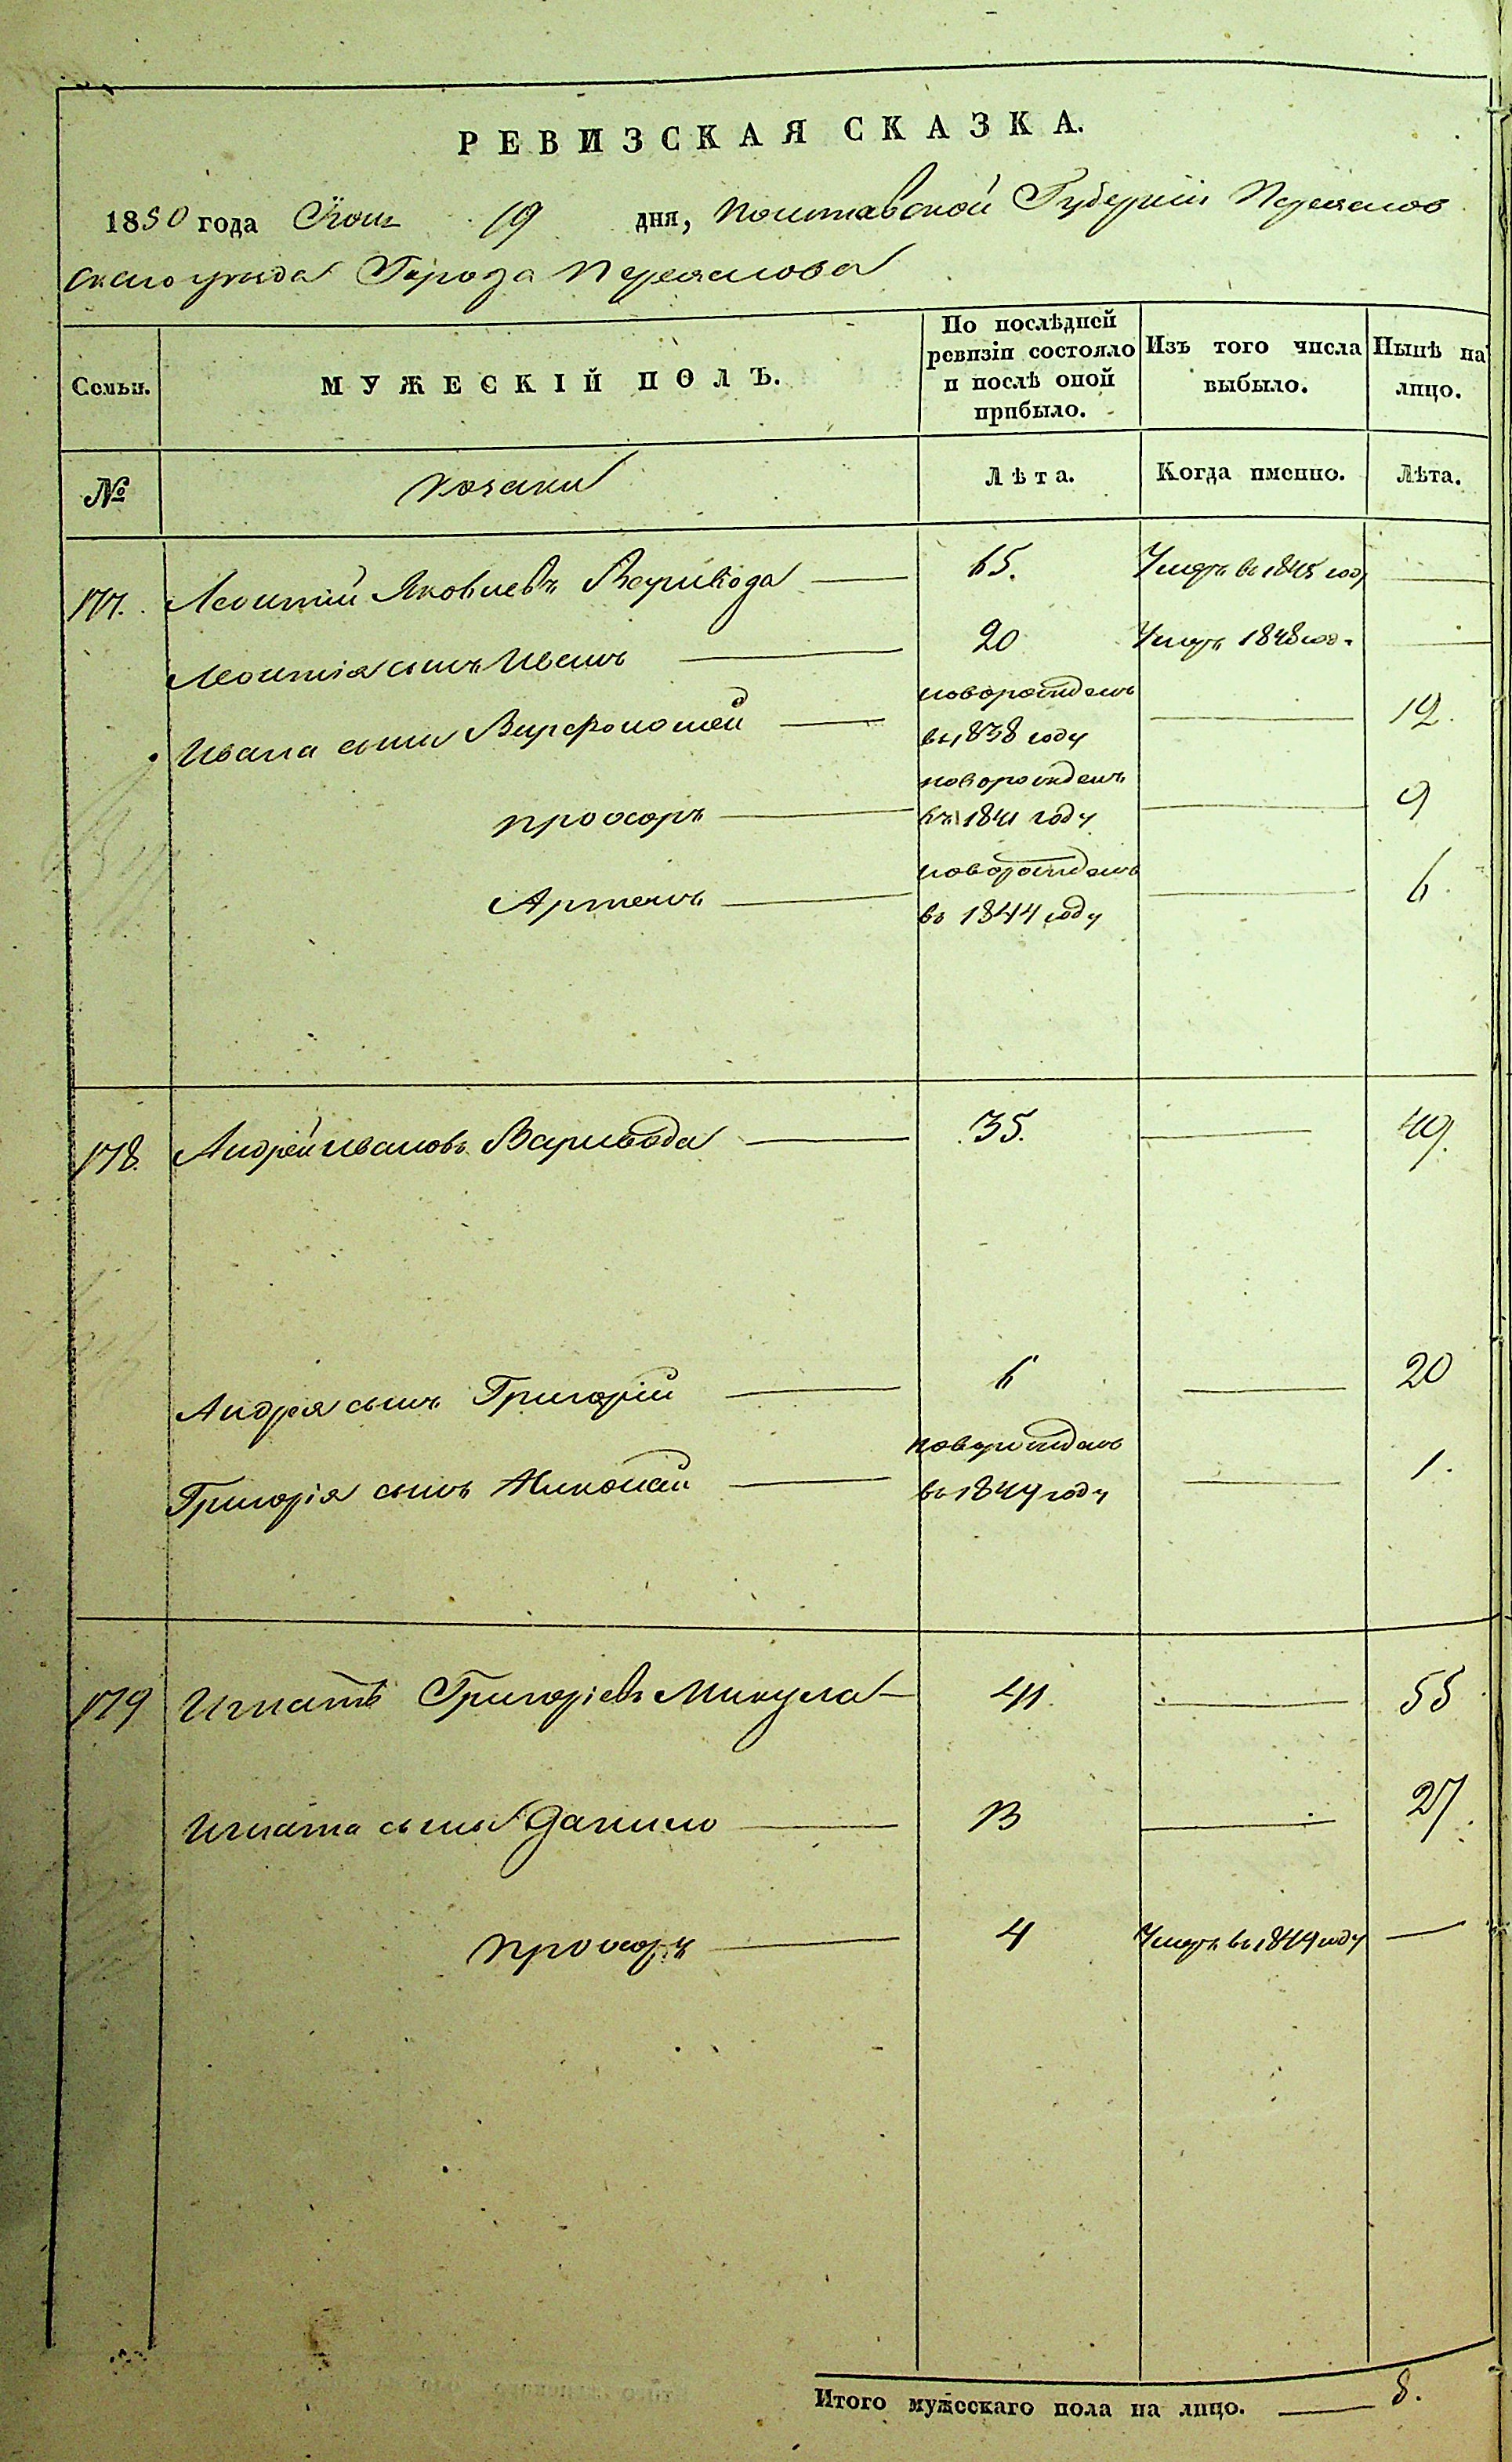 РЕВИЗСКАЯ СКАЗКА.
1850 года Июня 19 дня, Полтавской Губерніи Переяслов
скаго уезда Города Переяслова
Семьи. МУЖЕСКІЙ ПОЛЪ. По послѣдней ревизіи состояло и послѣ оной прибыло. Изъ того числа выбыло. Нынѣ на лицо.
№ Козаки Лѣта. Когда именно. Лѣта.
177. Леонтий Яковлевъ Варивода — 65. Умеръ в 1845 году —
Леонтія сынъ Иванъ — 20 Умеръ 1848 год. —
Ивана сыны Варфоломей — новорожденъ в 1838 году — 12.
Прохоръ — новорожденъ въ 1841 году — 9
Артемъ — новорожденъ въ 1844 году — 6
178. Андрей Ивановъ Варивода — 35. — 49.
Андрея сынъ Григорій — 6 — 20
Григорія сынъ Николай — новорожденъ въ 1849 году — 1.
179 Игнатъ Григоріевъ Микула — 41. — 55
Игната сыны Данило — 13 — 27.
Прохоръ — 4 Умеръ въ 1844 году —
Итого мужескаго пола на лицо. — 8.